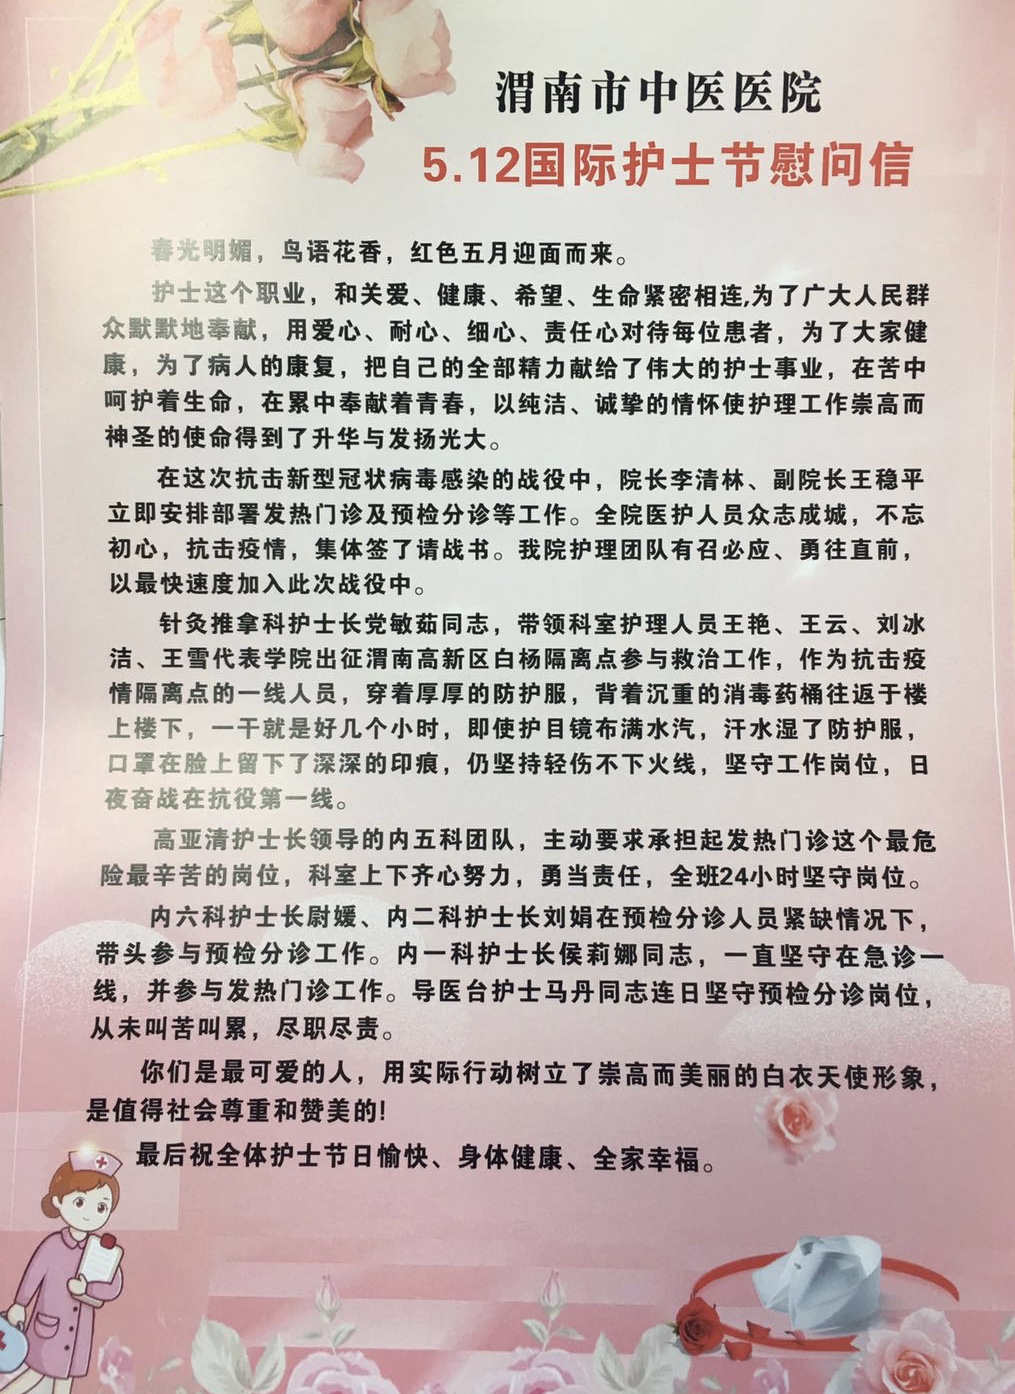 渭南市中医医院
5.12国际护士节慰问信
春光明媚，鸟语花香，红色五月迎面而来。
护士这个职业，和关爱、健康、希望、生命紧密相连,为了广大人民群
众默默地奉献，用爱心、耐心、细心、责任心对待每位患者，为了大家健
康，为了病人的康复，把自己的全部精力献给了伟大的护士事业，在苦中
呵护着生命，在累中奉献着青春，以纯洁、诚挚的情怀使护理工作崇高而
神圣的使命得到了升华与发扬光大。
在这次抗击新型冠状病毒感染的战役中，院长李清林、副院长王稳平
立即安排部署发热门诊及预检分诊等工作。全院医护人员众志成城，不忘
初心，抗击疫情，集体签了请战书。我院护理团队有召必应、勇往直前，
以最快速度加入此次战役中。
针灸推拿科护士长党敏茹同志，带领科室护理人员王艳、王云、刘冰
洁、王雪代表学院出征渭南高新区白杨隔离点参与救治工作，作为抗击疫
情隔离点的一线人员，穿着厚厚的防护服，背着沉重的消毒药桶往返于楼
上楼下，一干就是好几个小时，即使护目镜布满水汽，汗水湿了防护服，
口罩在脸上留下了深深的印痕，仍坚持轻伤不下火线，坚守工作岗位，日
夜奋战在抗役第一线。
高亚清护士长领导的内五科团队，主动要求承担起发热门诊这个最危
险最辛苦的岗位，科室上下齐心努力，勇当责任，全班24小时坚守岗位。
内六科护士长尉媛、内二科护士长刘娟在预检分诊人员紧缺情况下，
带头参与预检分诊工作。内一科护士长侯莉娜同志，一直坚守在急诊一
线，并参与发热门诊工作。导医台护士马丹同志连日坚守预检分诊岗位，
从未叫苦叫累，尽职尽责。
你们是最可爱的人，用实际行动树立了崇高而美丽的白衣天使形象，
是值得社会尊重和赞美的!
最后祝全体护士节日愉快、身体健康、全家幸福。